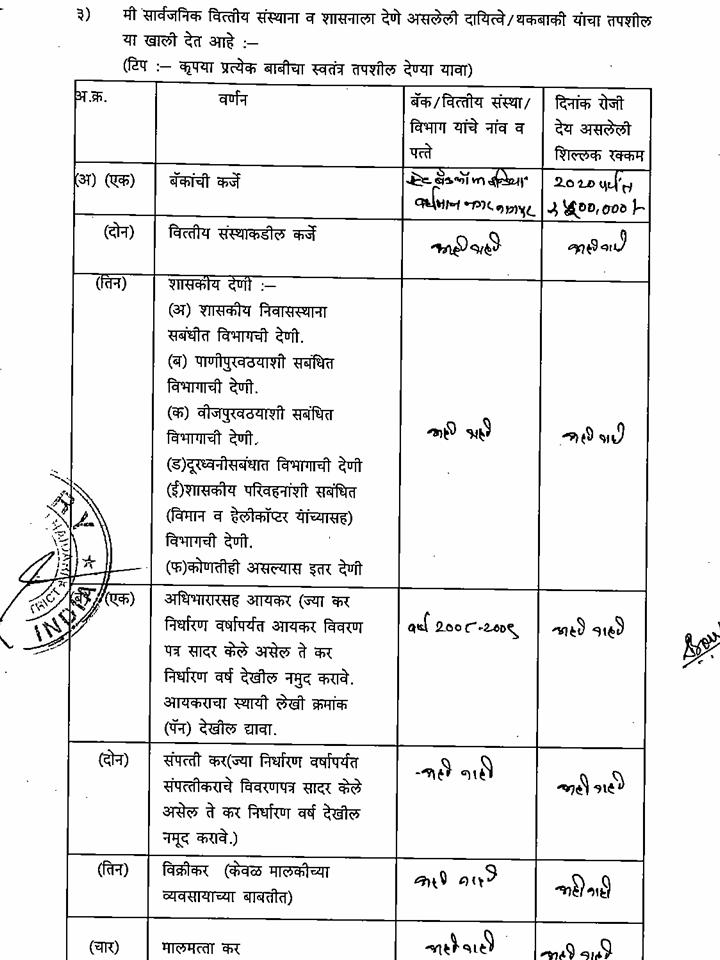 ३) मी सार्वजनिक वित्तीय संस्थाना व शासनाला देणे असलेली दायित्वे/थकबाकी यांचा तपशील
या खाली देत आहे :—
(टिप :— कृपया प्रत्येक बाबीचा स्वतंत्र तपशील देण्या यावा)
अ.क्र. वर्णन बॅक/वित्तीय संस्था/ दिनांक रोजी
विभाग यांचे नांव व देय असलेली
पत्ते शिल्लक रक्कम
(अ) (एक) बॅकांची कर्जे स्टेट बँक ऑफ इंडिया 2020 पर्यंत
वर्धमान नगर नागपूर 00,000/-
(दोन) वित्तीय संस्थाकडील कर्जे काही नाही काही नाही
(तिन) शासकीय देणी :—
(अ) शासकीय निवासस्थाना
सबंधीत विभागची देणी.
(ब) पाणीपुरवठयाशी सबंधित
विभागाची देणी.
(क) वीजपुरवठयाशी सबंधित
विभागाची देणी. काही नाही काही नाही
(ड)दूरध्वनीसबंधात विभागाची देणी
(ई)शासकीय परिवहनांशी सबंधित
(विमान व हेलीकॉप्टर यांच्यासह)
विभागची देणी.
(फ)कोणतीही असल्यास इतर देणी
(एक) अधिभारारसह आयकर (ज्या कर
निर्धारण वर्षापर्यत आयकर विवरण वर्ष २००८-२००९ काही नाही
पत्र सादर केले असेल ते कर
निर्धारण वर्ष देखील नमुद करावे.
आयकराचा स्थायी लेखी क्रमांक
(पॅन) देखील द्यावा.
(दोन) संपत्ती कर(ज्या निर्धारण वर्षापर्यत काही नाही काही नाही
संपत्तीकराचे विवरणपत्र सादर केले
असेल ते कर निर्धारण वर्ष देखील
नमूद करावे.)
(तिन) विक्रीकर (केवळ मालकीच्या काही नाही काही नाही
व्यवसायाच्या बाबतीत)
(चार) मालमत्ता कर काही नाही काही नाही
INDIA